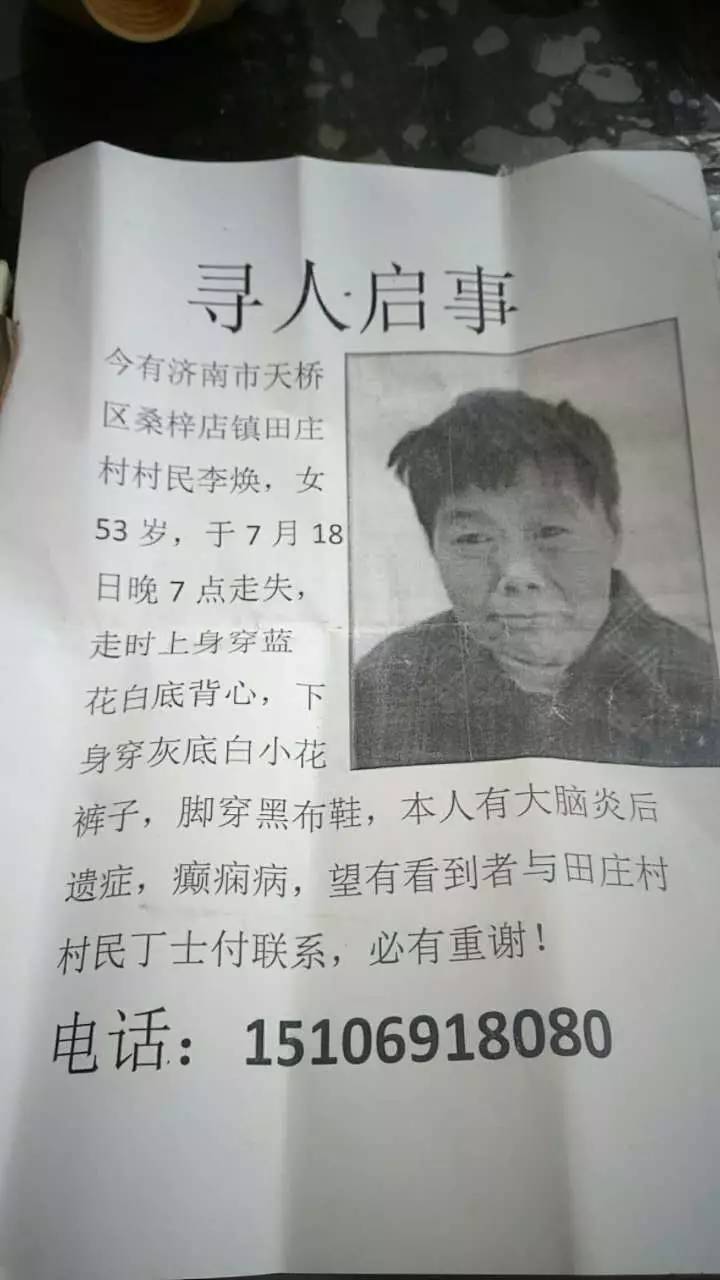 寻人启事
今有济南市天桥
区桑梓店镇田庄
村村民李焕，女
53 岁，于 7 月 18
日晚 7 点走失，
走时上身穿蓝
花白底背心，下
身穿灰底白小花
裤子，脚穿黑布鞋，本人有大脑炎后
遗症，癫痫病，望有看到者与田庄村
村民丁士付联系，必有重谢！
电话：15106918080